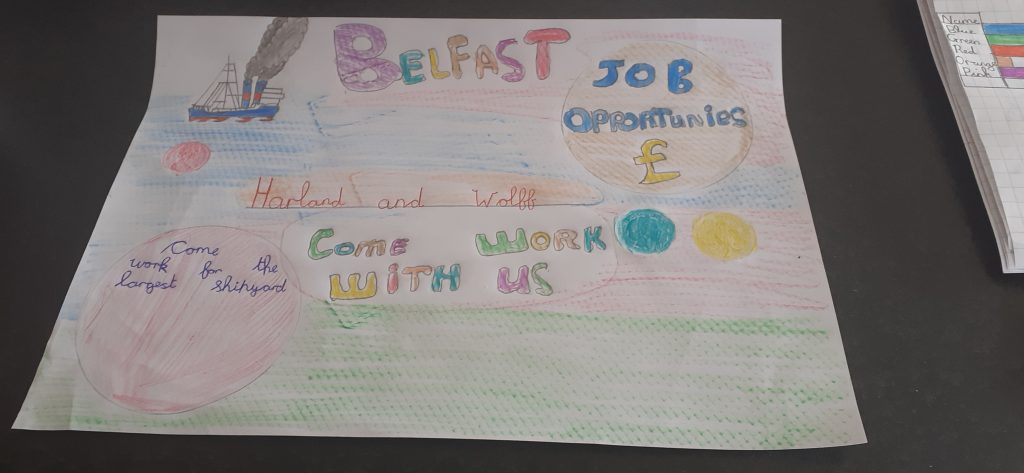 BELFAST
JOB
OPPORTUNIES
£
Harland and Wolff
COME WORK
WITH US
Come
work for the
largest shipyard
Name
Blue
Green
Red
Orange
Pink